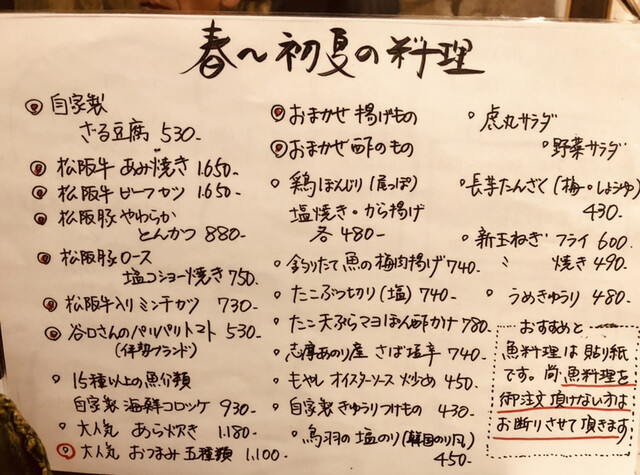 春〜初夏の料理
◉ 自家製
ざる豆腐 530-
◉ 松阪牛 あみ焼き 1.650-
◉ 松阪牛 ビーフカツ 1.650-
◉ 松阪豚 やわらか
とんかつ 880-
◉ 松阪豚ロース
塩コショー焼き 750-
◉ 松阪牛入りミンチカツ 730-
◉ 谷口さんのパリパリトマト 530-
(伊勢ブランド)
・15種以上の魚介類
自家製 海鮮コロッケ 930-
・大人気 あら炊き 1.180-
◉ 大人気 おつまみ 五種類 1.100-
◉ おまかせ 揚げもの
◉ おまかせ 酢のもの
・鶏ぼんじり(尾っぽ)
塩焼き・から揚げ
各 480-
・釣りたて魚の梅肉揚げ 740-
・たこぶつ切り(塩) 740-
・たこ天ぷらマヨぽん酢かけ 780-
・志摩あのり産 さば塩辛 740-
・もやし オイスターソース炒め 450-
・自家製 きゅうりつけもの 430-
・鳥羽の塩のり(韓国のり風)
450-
・虎丸サラダ
・野菜サラダ
・長芋たんざく(梅・しょうゆ)
430-
・新玉ねぎ フライ 600-
〃 焼き 490-
・うめきゅうり 480-
おすすめと
魚料理は貼り紙
です。尚 魚料理を
御注文頂けない方は
お断りさせて頂きます